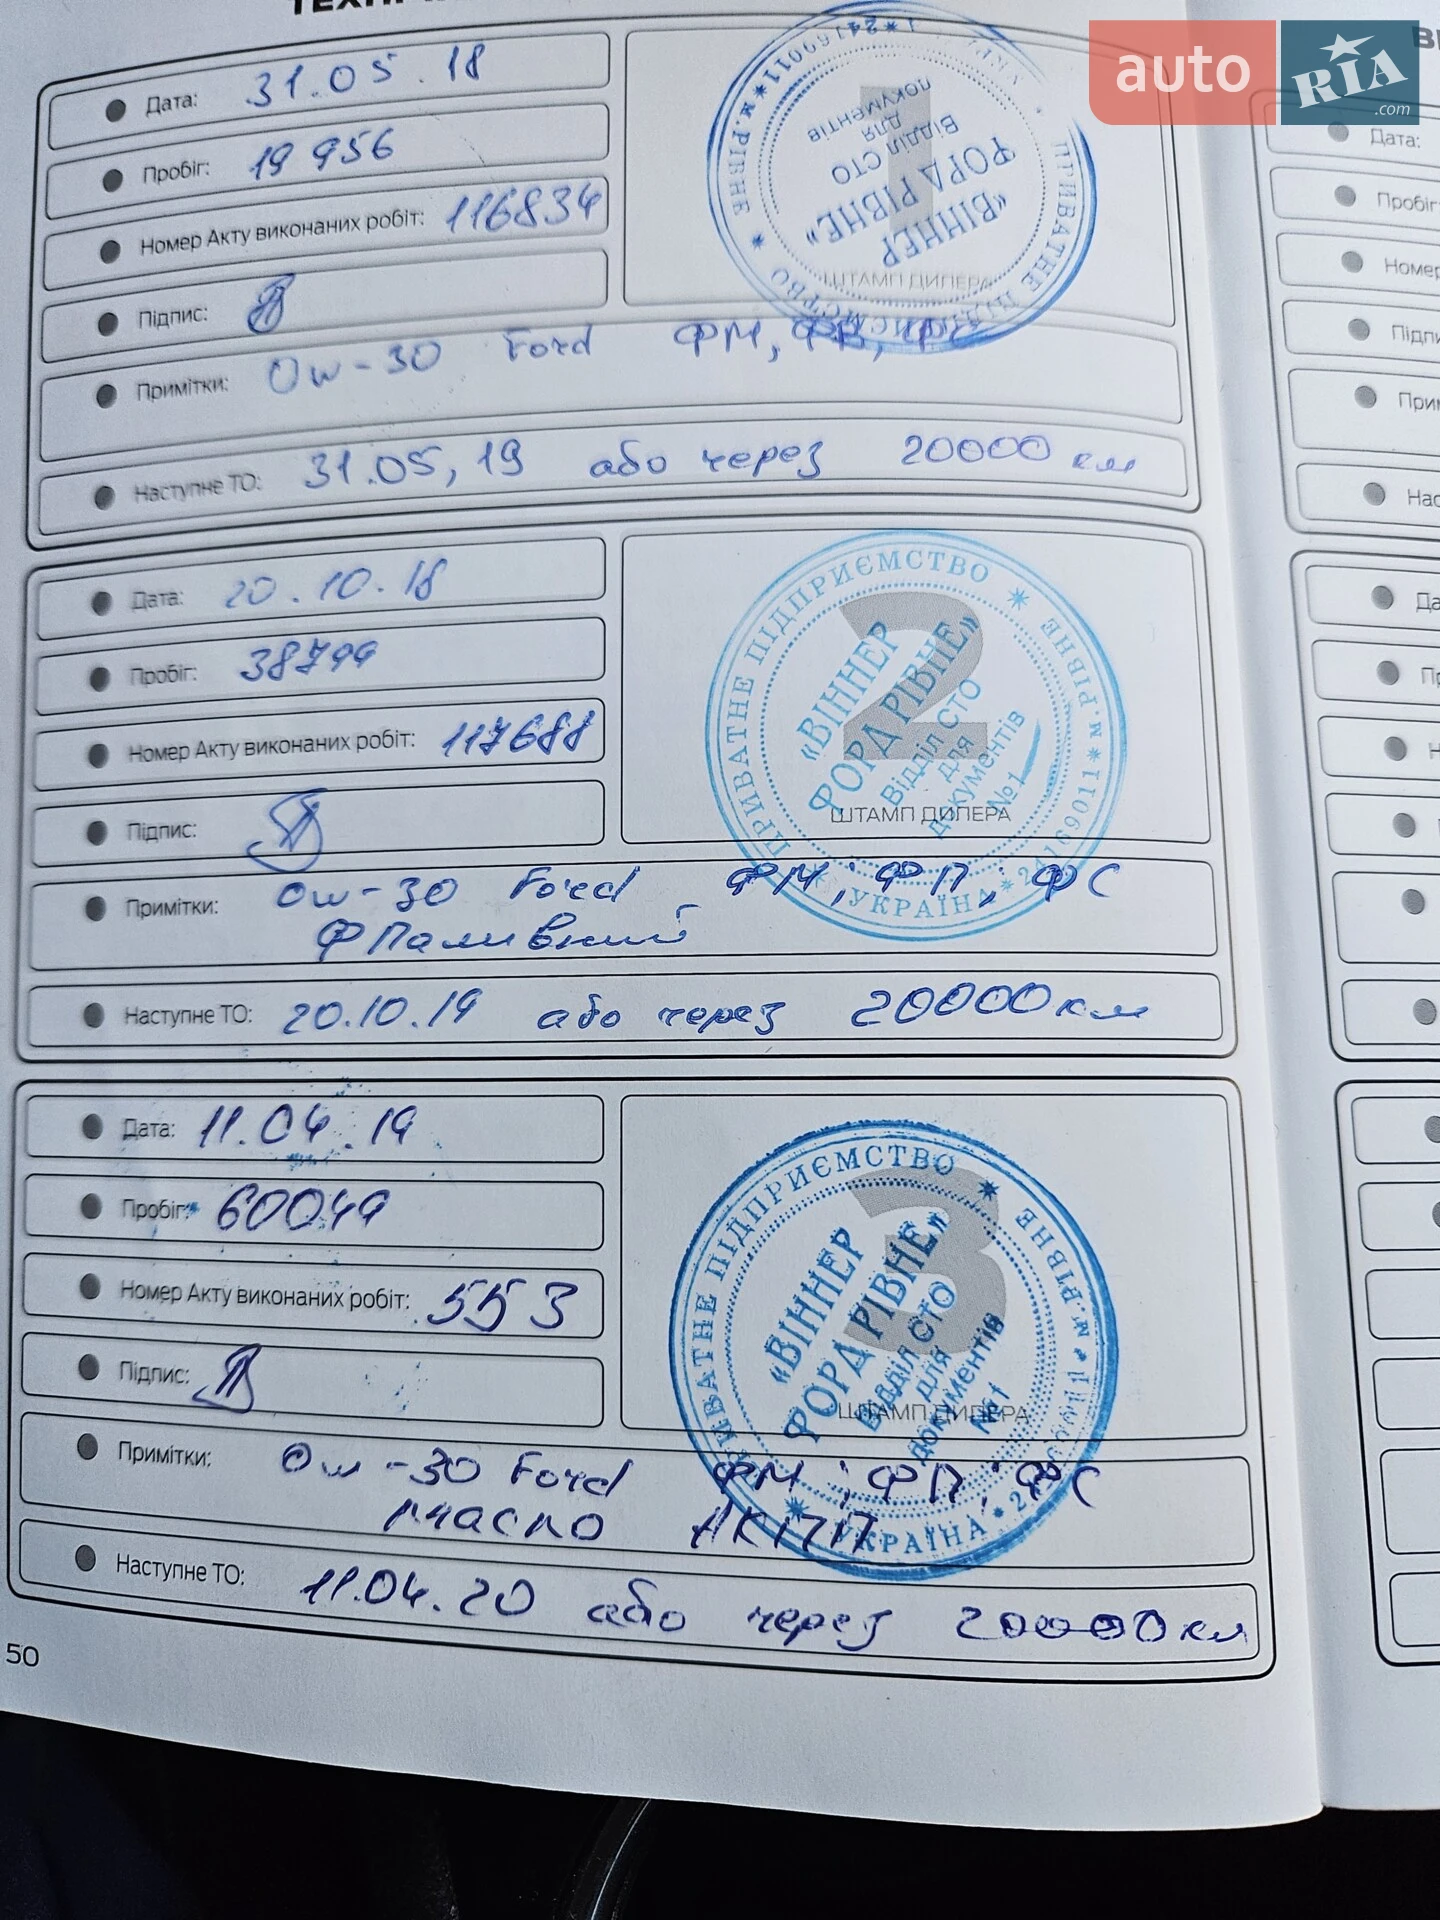 auto RIA .com
Дата: 31.05.18
Пробіг: 19 956
Номер Акту виконаних робіт: 116834
Підпис:
Примітки: Ow-30 Ford ФМ,
Наступне ТО: 31.05,19 або через 20000 км
ПРИВАТНЕ ПІДПРИЄМСТВО * М.РІВНЕ
«ВІННЕР
ФОРД РІВНЕ»
Відділ СТО
для
документів
1
ШТАМП ДИЛЕРА
Дата: 20.10.18
Пробіг: 38799
Номер Акту виконаних робіт: 117688
Підпис:
Примітки: Ow-30 Ford ФМ; ФП; ФС
ФПаливний
Наступне ТО: 20.10.19 або через 20000 км
ПРИВАТНЕ ПІДПРИЄМСТВО * М.РІВНЕ * УКРАЇНА * 24169011
«ВІННЕР
ФОРД РІВНЕ»
Відділ СТО
для
документів
№1
2
ШТАМП ДИЛЕРА
Дата: 11.04.19
Пробіг: 60049
Номер Акту виконаних робіт: 553
Підпис:
Примітки: Ow-30 Ford ФМ; ФП; ФС
масло АКПП
Наступне ТО: 11.04.20 або через 20000 км
ПРИВАТНЕ ПІДПРИЄМСТВО * М.РІВНЕ * УКРАЇНА
«ВІННЕР
ФОРД РІВНЕ»
Відділ СТО
для
документів
№1
3
ШТАМП ДИЛЕРА
50
Дата:
Пробіг
Номер